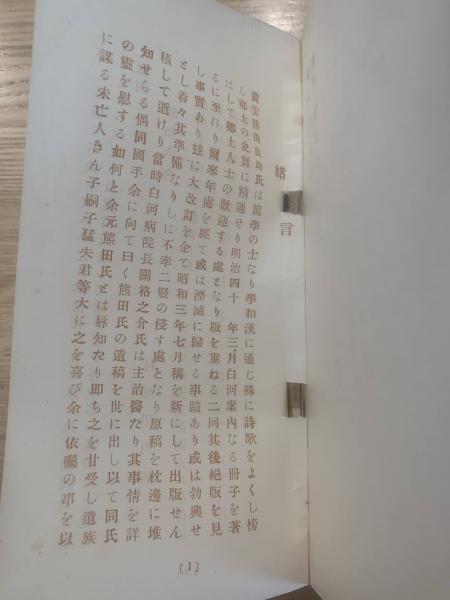 緒言
黄雲熊田良助氏は篤學の士なり學和漢に通じ殊に詩歌をよくし傍
ら鄕土の史實に精通せり明治四十　年三月白河案内なる冊子を著
はして鄕土人士の歡迎する處となり版を重ねる二回其後絶版を見
るに至れり爾來年處を經て或は湮滅に歸せる事蹟あり或は勃興せ
し事實あり玆に大改訂を企て昭和三年七月稿を新にして出版せん
とし着々其準備なりしに不幸二竪の侵す處となり原稿を枕邊に堆
積して逝けり當時白河病院長關格之介氏は主治醫たり其事情を詳
知せらる偶同國手余に向て曰く熊田氏の遺稿を世に出し以て同氏
の靈を慰する如何と余元熊田氏とは辱知たり即ち之を甘受し遺族
に謀る未亡人きん子嗣子猛夫君等大に之を喜び余に依囑の事を以
〔1〕